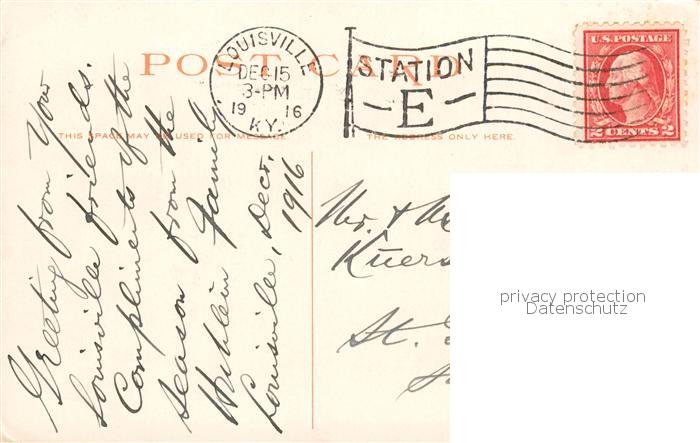 POST CARD
LOUISVILLE
DEC 15
3-PM
1916
KY.
STATION
E
U.S. POSTAGE
2 CENTS 2
THIS SPACE MAY BE USED FOR MESSAGE
THE ADDRESS ONLY HERE.
Greeting from Your
Louisville friends.
Compliments of the
season from the
Family.
Louisville, Decr.
1916
Mr. &
St.
privacy protection
Datenschutz